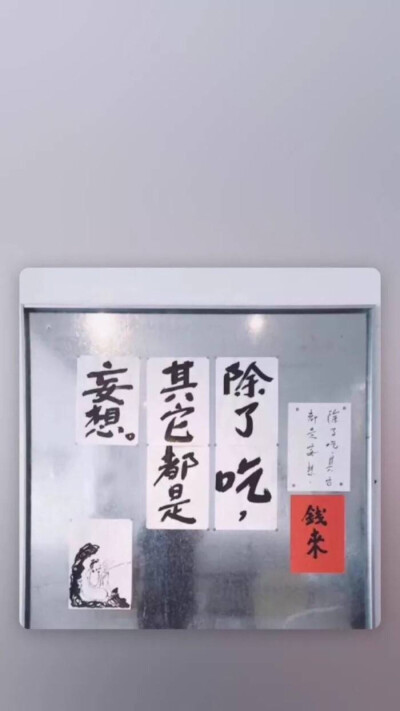 除了吃，其它
都是妄想.
錢來
除了吃，
其它都是
妄想。